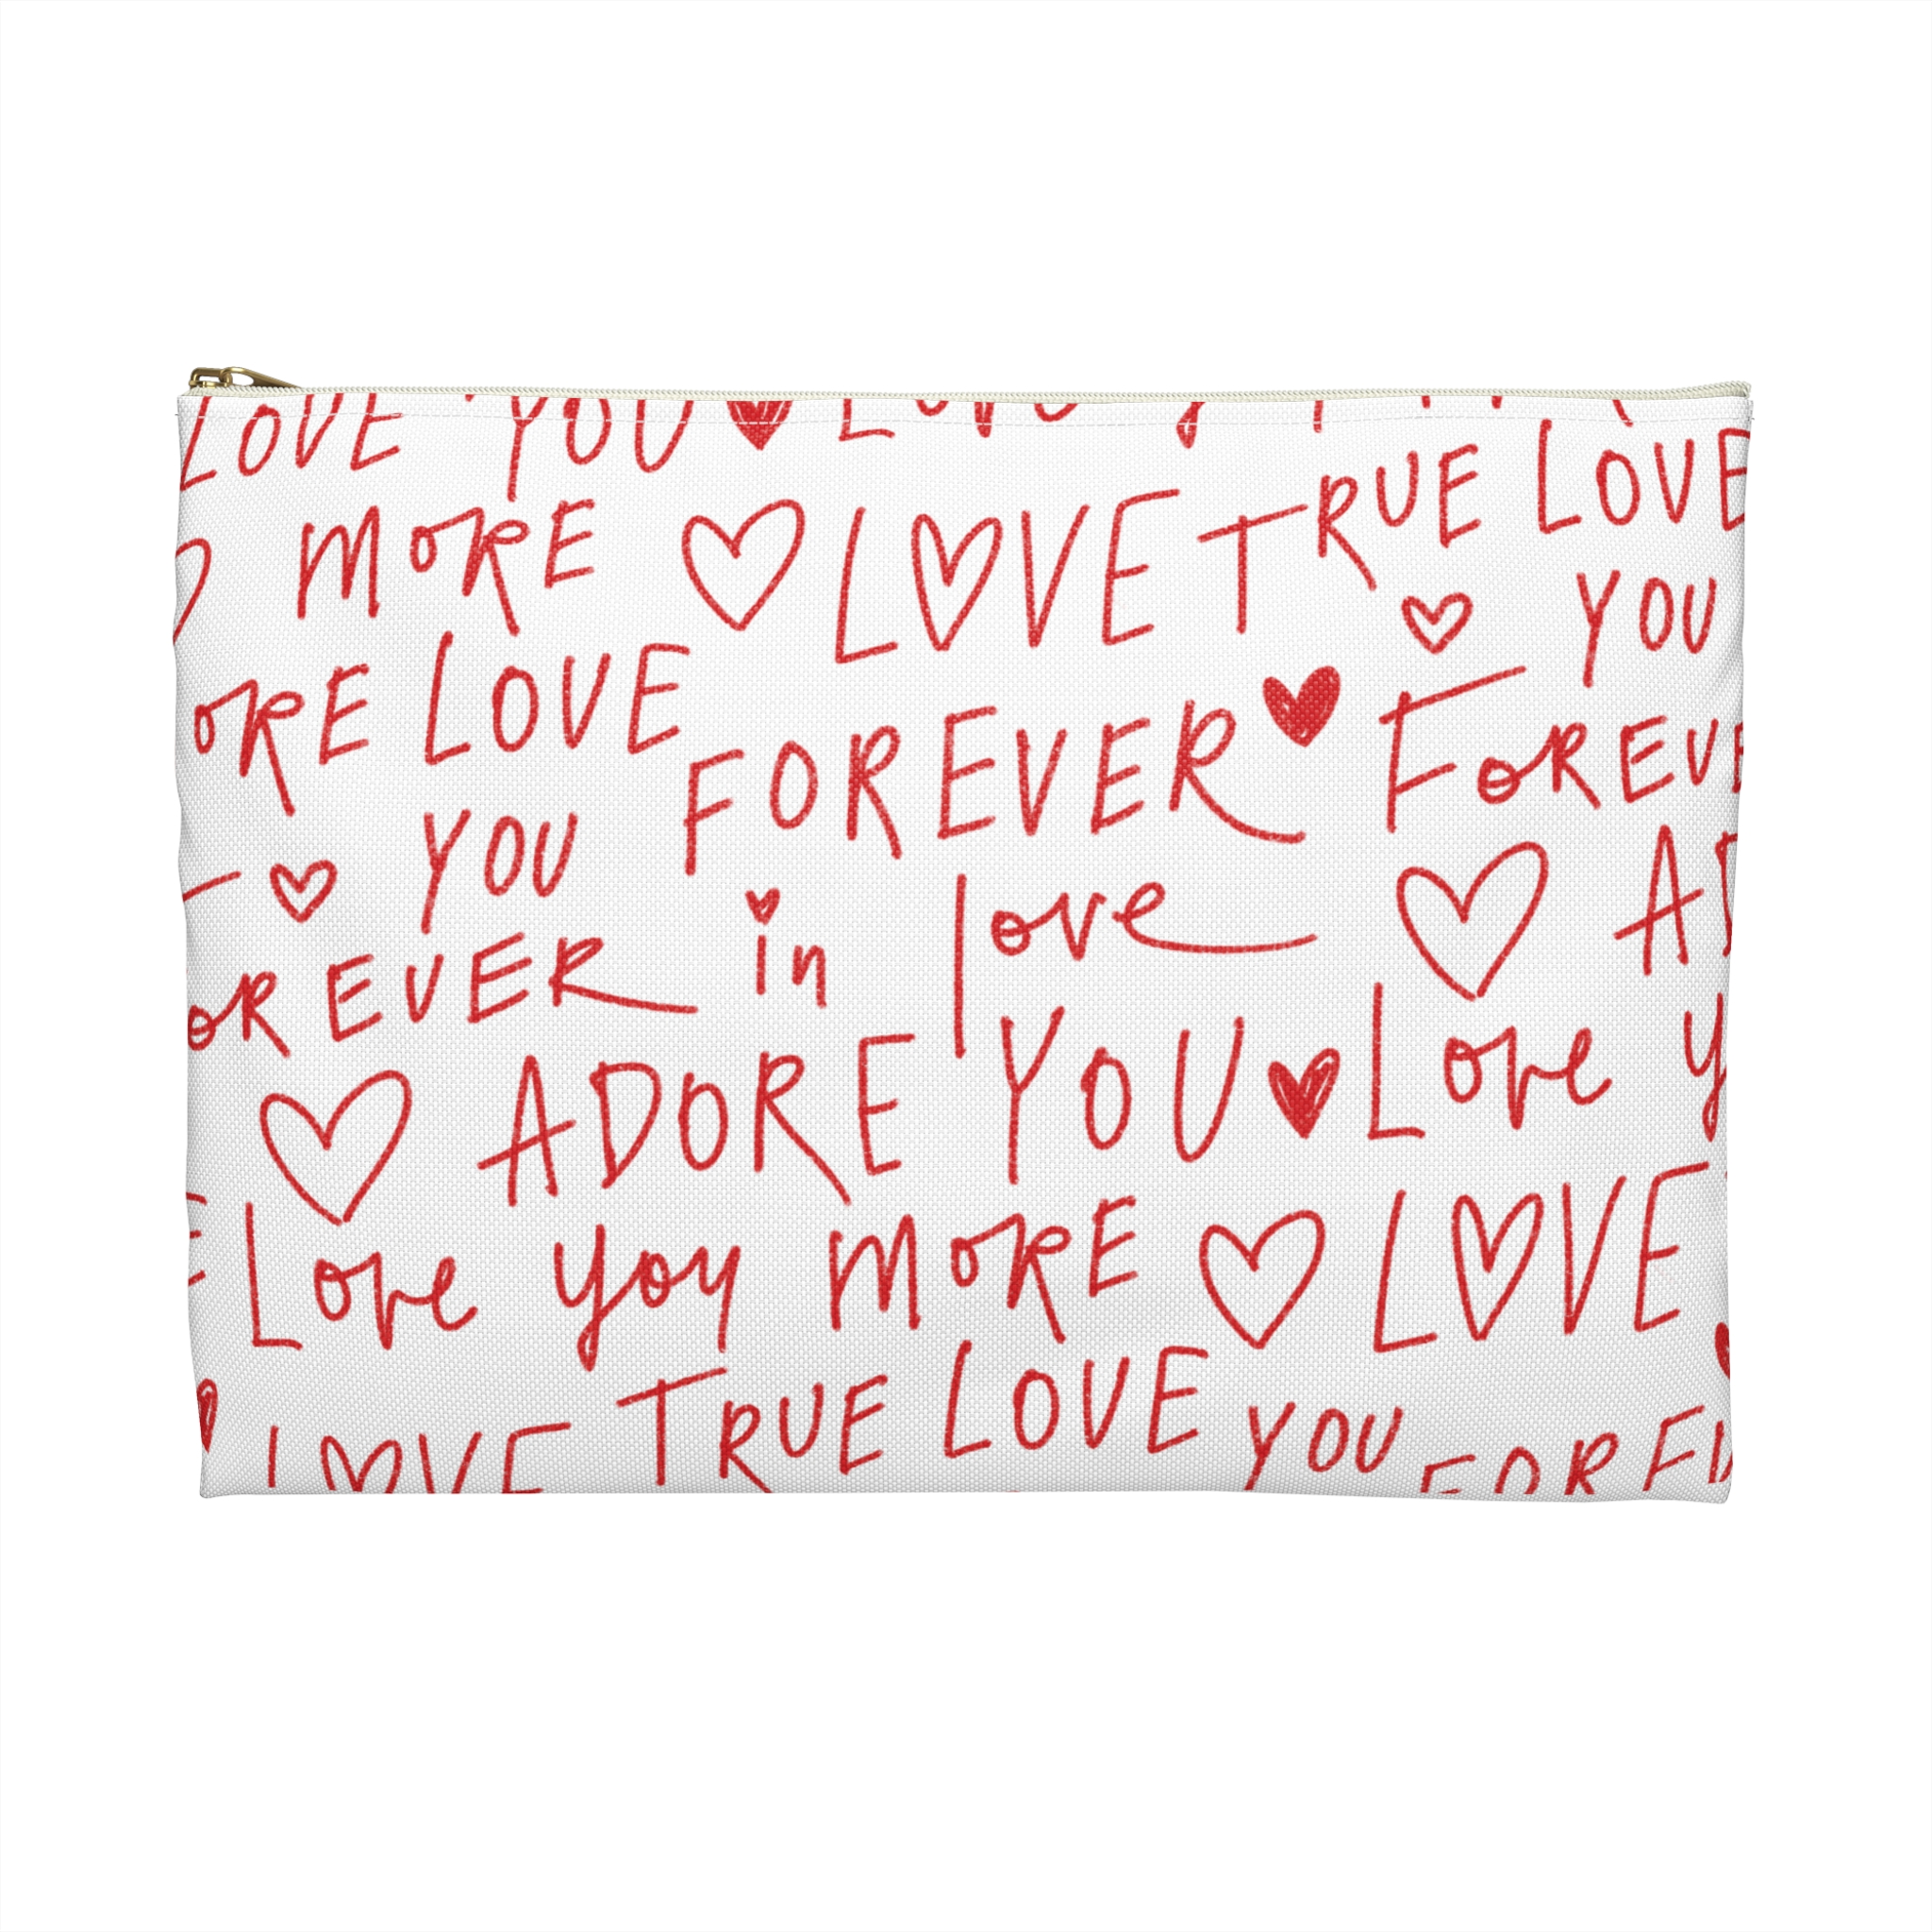 LOVE YOU Love
MORE LOVE TRUE LOVE
ORE LOVE YOU
FOREVER FOREVE
YOU in love AD
OREVER
ADORE YOU Love y
Love you MORE LOVE
LOVE TRUE LOVE YOU FOREV